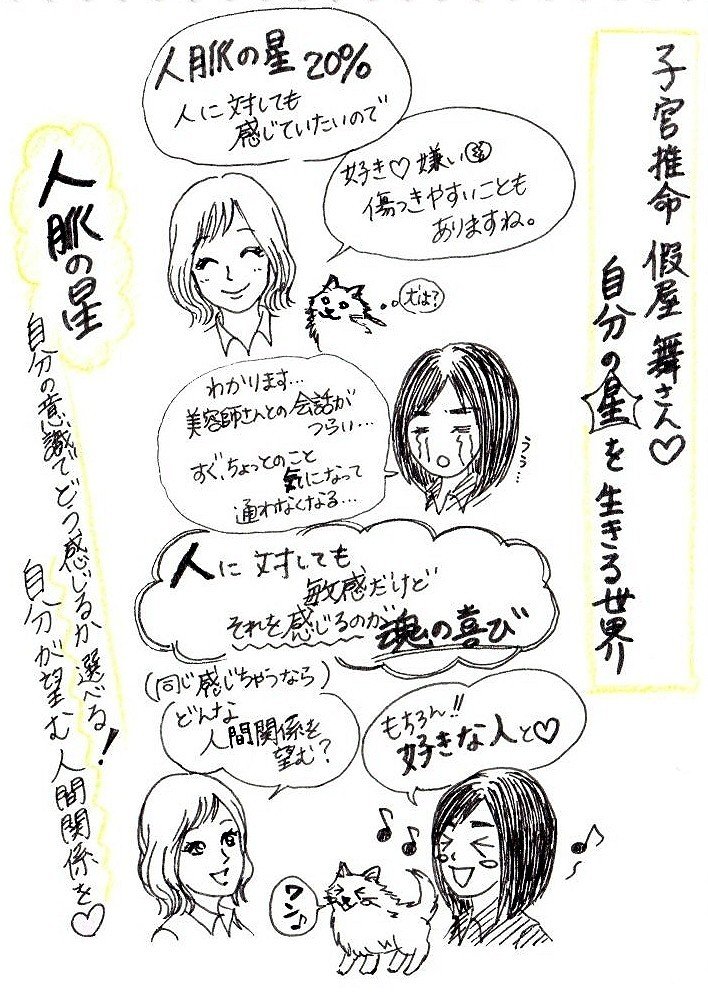 子宮推命 假屋 舞さん♡
自分の星を生きる世界
人脈の星 20%
人に対しても
感じていたいので
好き♡ 嫌い
傷つきやすいことも
ありますね。
犬は?
人脈の星
自分の意識でどう感じるか選べる!
自分が望む人間関係を♡
わかります…
美容師さんとの会話が
つらい…
すぐ、ちょっとのこと
気になって
通わなくなる…
うぅ…
人に対しても
敏感だけど
それを感じるのが魂の喜び
(同じ感じちゃうなら)
どんな
人間関係を
望む?
もちろん!!
好きな人と♡
ワン♪